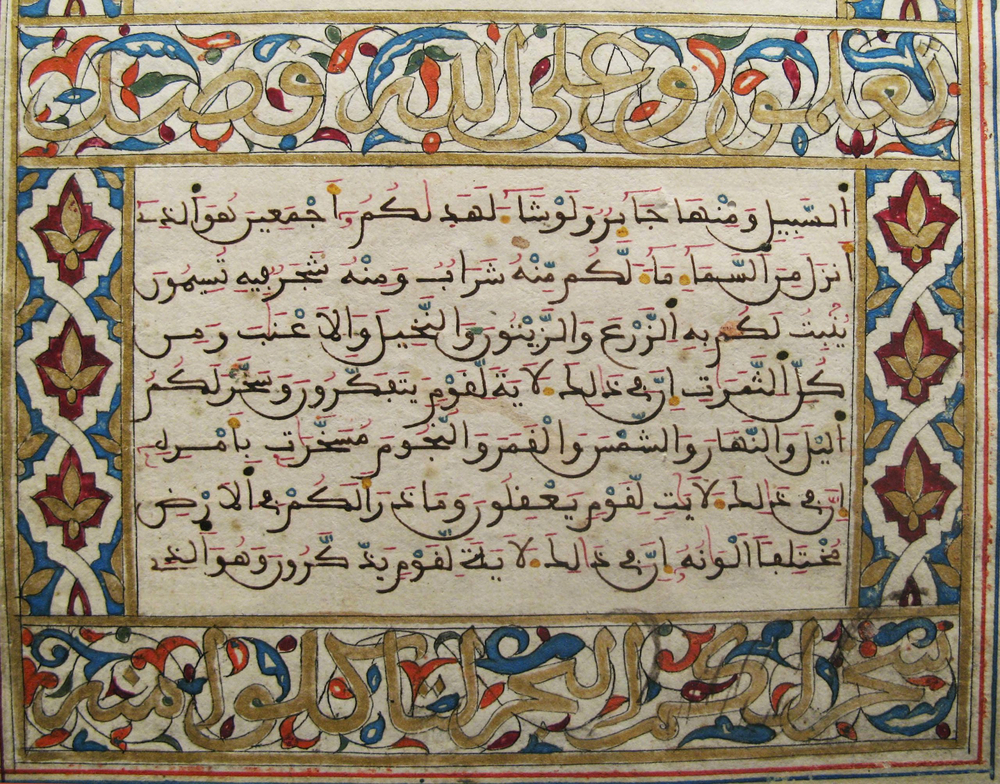 تعلمون وعلى الله قصد
السبيل ومنها جاير ولو شاء لهديكم أجمعين هو الذي
أنزل من السماء ماء لكم منه شراب ومنه شجر فيه تسيمون
ينبت لكم به الزرع والزيتون والنخيل والاعنب ومن
كل الثمرت إن في ذلك لاية لقوم يتفكرون وسخر لكم
اليل والنهار والشمس والقمر والنجوم مسخرات بأمره
إن في ذلك لايت لقوم يعقلون وما ذرأ لكم في الارض
مختلفا ألوانه إن في ذلك لاية لقوم يذكرون وهو الذي
سخر لكم البحر لتاكلوا منه